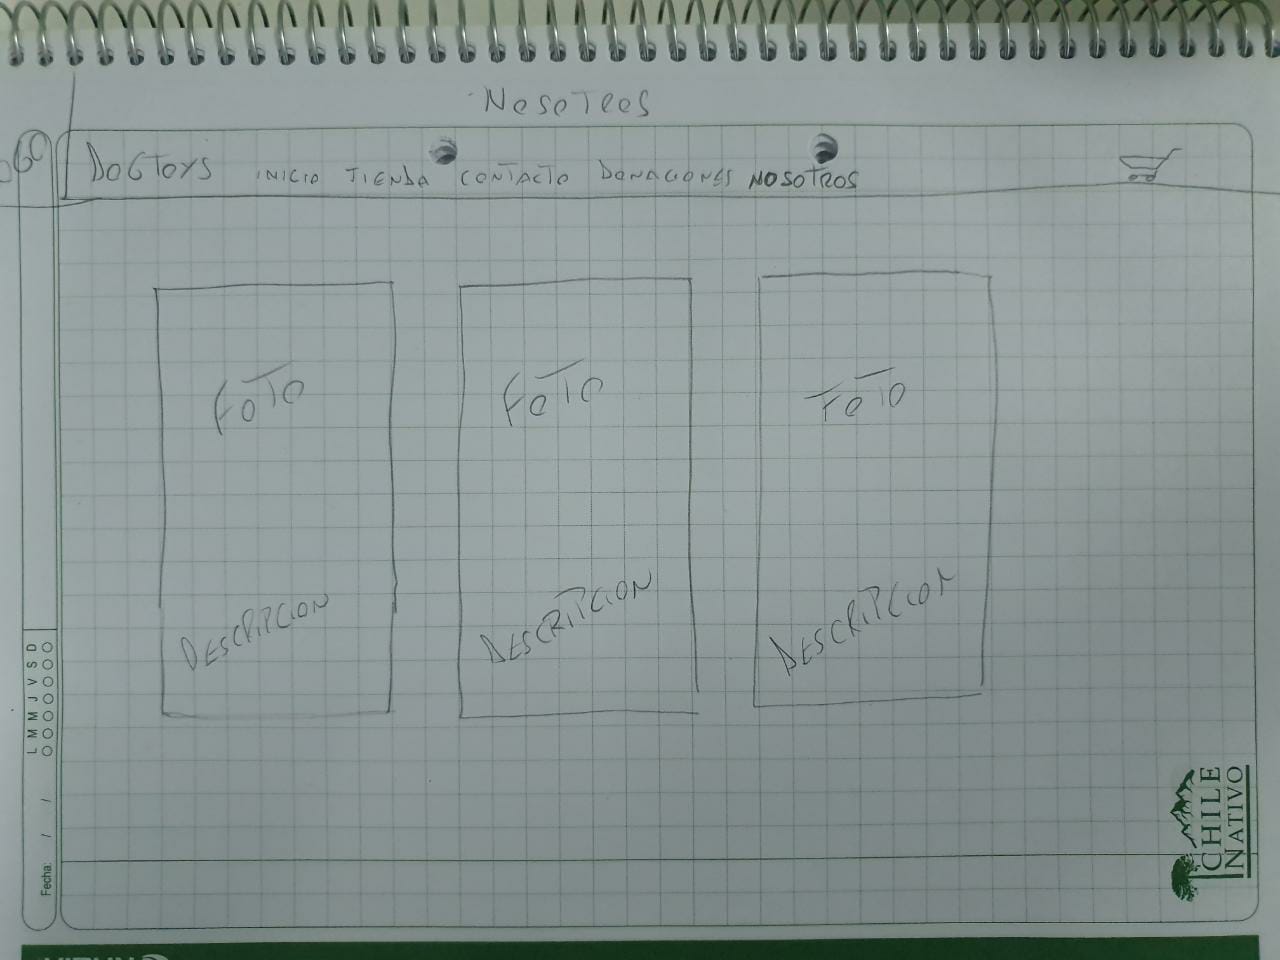 NOSOTROS
DOGTOYS INICIO TIENDA CONTACTO DONACIONES NOSOTROS
FOTO FOTO FOTO
DESCRIPCION DESCRIPCION DESCRIPCION
L M M J V S D
Fecha: / /
CHILE
NATIVO